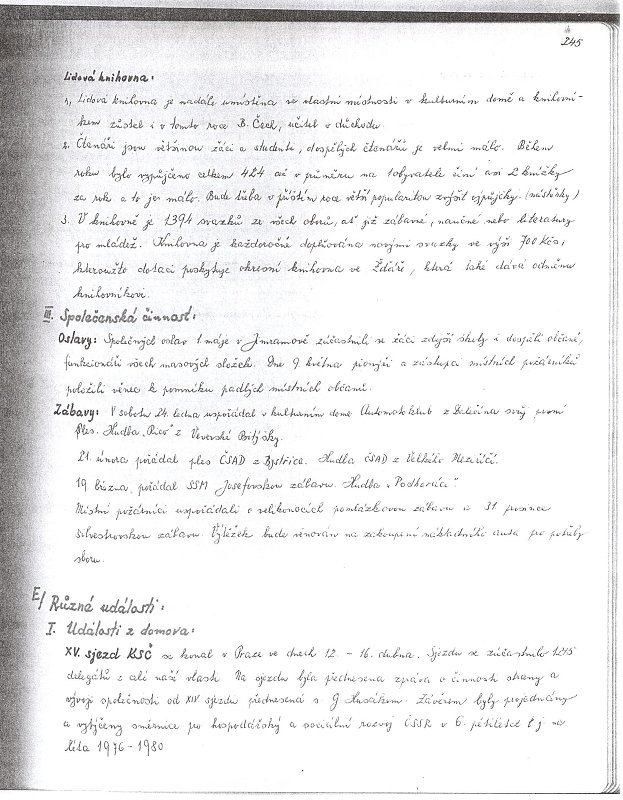 245
Lidová knihovna:
1, Lidová knihovna je nadále umístěna ve vlastní místnosti v kulturním domě a knihovní-
kem zůstal i v tomto roce B. Čech, učitel v důchodu.
2. Čtenáři jsou většinou žáci a studenti, dospělých čtenářů je velmi málo. Během
roku bylo vypůjčeno celkem 424 což v průměru na 1 obyvatele činí asi 2 knížky
za rok a to je málo. Bude třeba v příštím roce větší popularitou zvýšit výpůjčky.
3. V knihovně je 1394 svazků ze všech oborů, ať již zábavné, naučné nebo literatury
pro mládež. Knihovna je každoročně doplňována novými svazky ve výši 700 Kčs,
kteroužto dotaci poskytuje okresní knihovna ve Žďáře, která také dává odměnu
knihovníkovi.
III. Společenská činnost:
Oslavy: Společných oslav 1. máje v Jimramově zúčastnili se žáci zdejší školy i dospělí občané,
funkcionáři všech masových složek. Dne 9. května pionýři a zástupci místních požárníků
položili věnec k pomníku padlých místních občanů.
Zábavy: V sobotu 24. ledna uspořádal v kulturním domě Automotoklub z Dalečína svůj první
ples. Hudba „Rico" z Veverské Bitýšky.
21. února pořádal ples ČSAD z Bystřice. Hudba ČSAD z Velkého Meziříčí.
19 března, pořádal SSM Josefovskou zábavu. Hudba „Podhoráci".
Místní požárníci uspořádali o velikonocích pomlázkovou zábavu a 31 prosince
silvestrovskou zábavu. Výtěžek bude věnován na zakoupení nákladního auta pro potřeby
sboru.
E/ Různé události:
I. Události z domova:
XV. sjezd KSČ se konal v Praze ve dnech 12. - 16. dubna. Sjezdu se zúčastnilo 1215
delegátů z celé naší vlasti. Na sjezdu byla přednesena zpráva o činnosti strany a
vývoji společnosti od XIV sjezdu přednesená s. G Husákem. Závěrem byly projednány
a vytýčeny směrnice pro hospodářský a sociální rozvoj ČSSR v 6. pětiletce t j na
léta 1976 - 1980